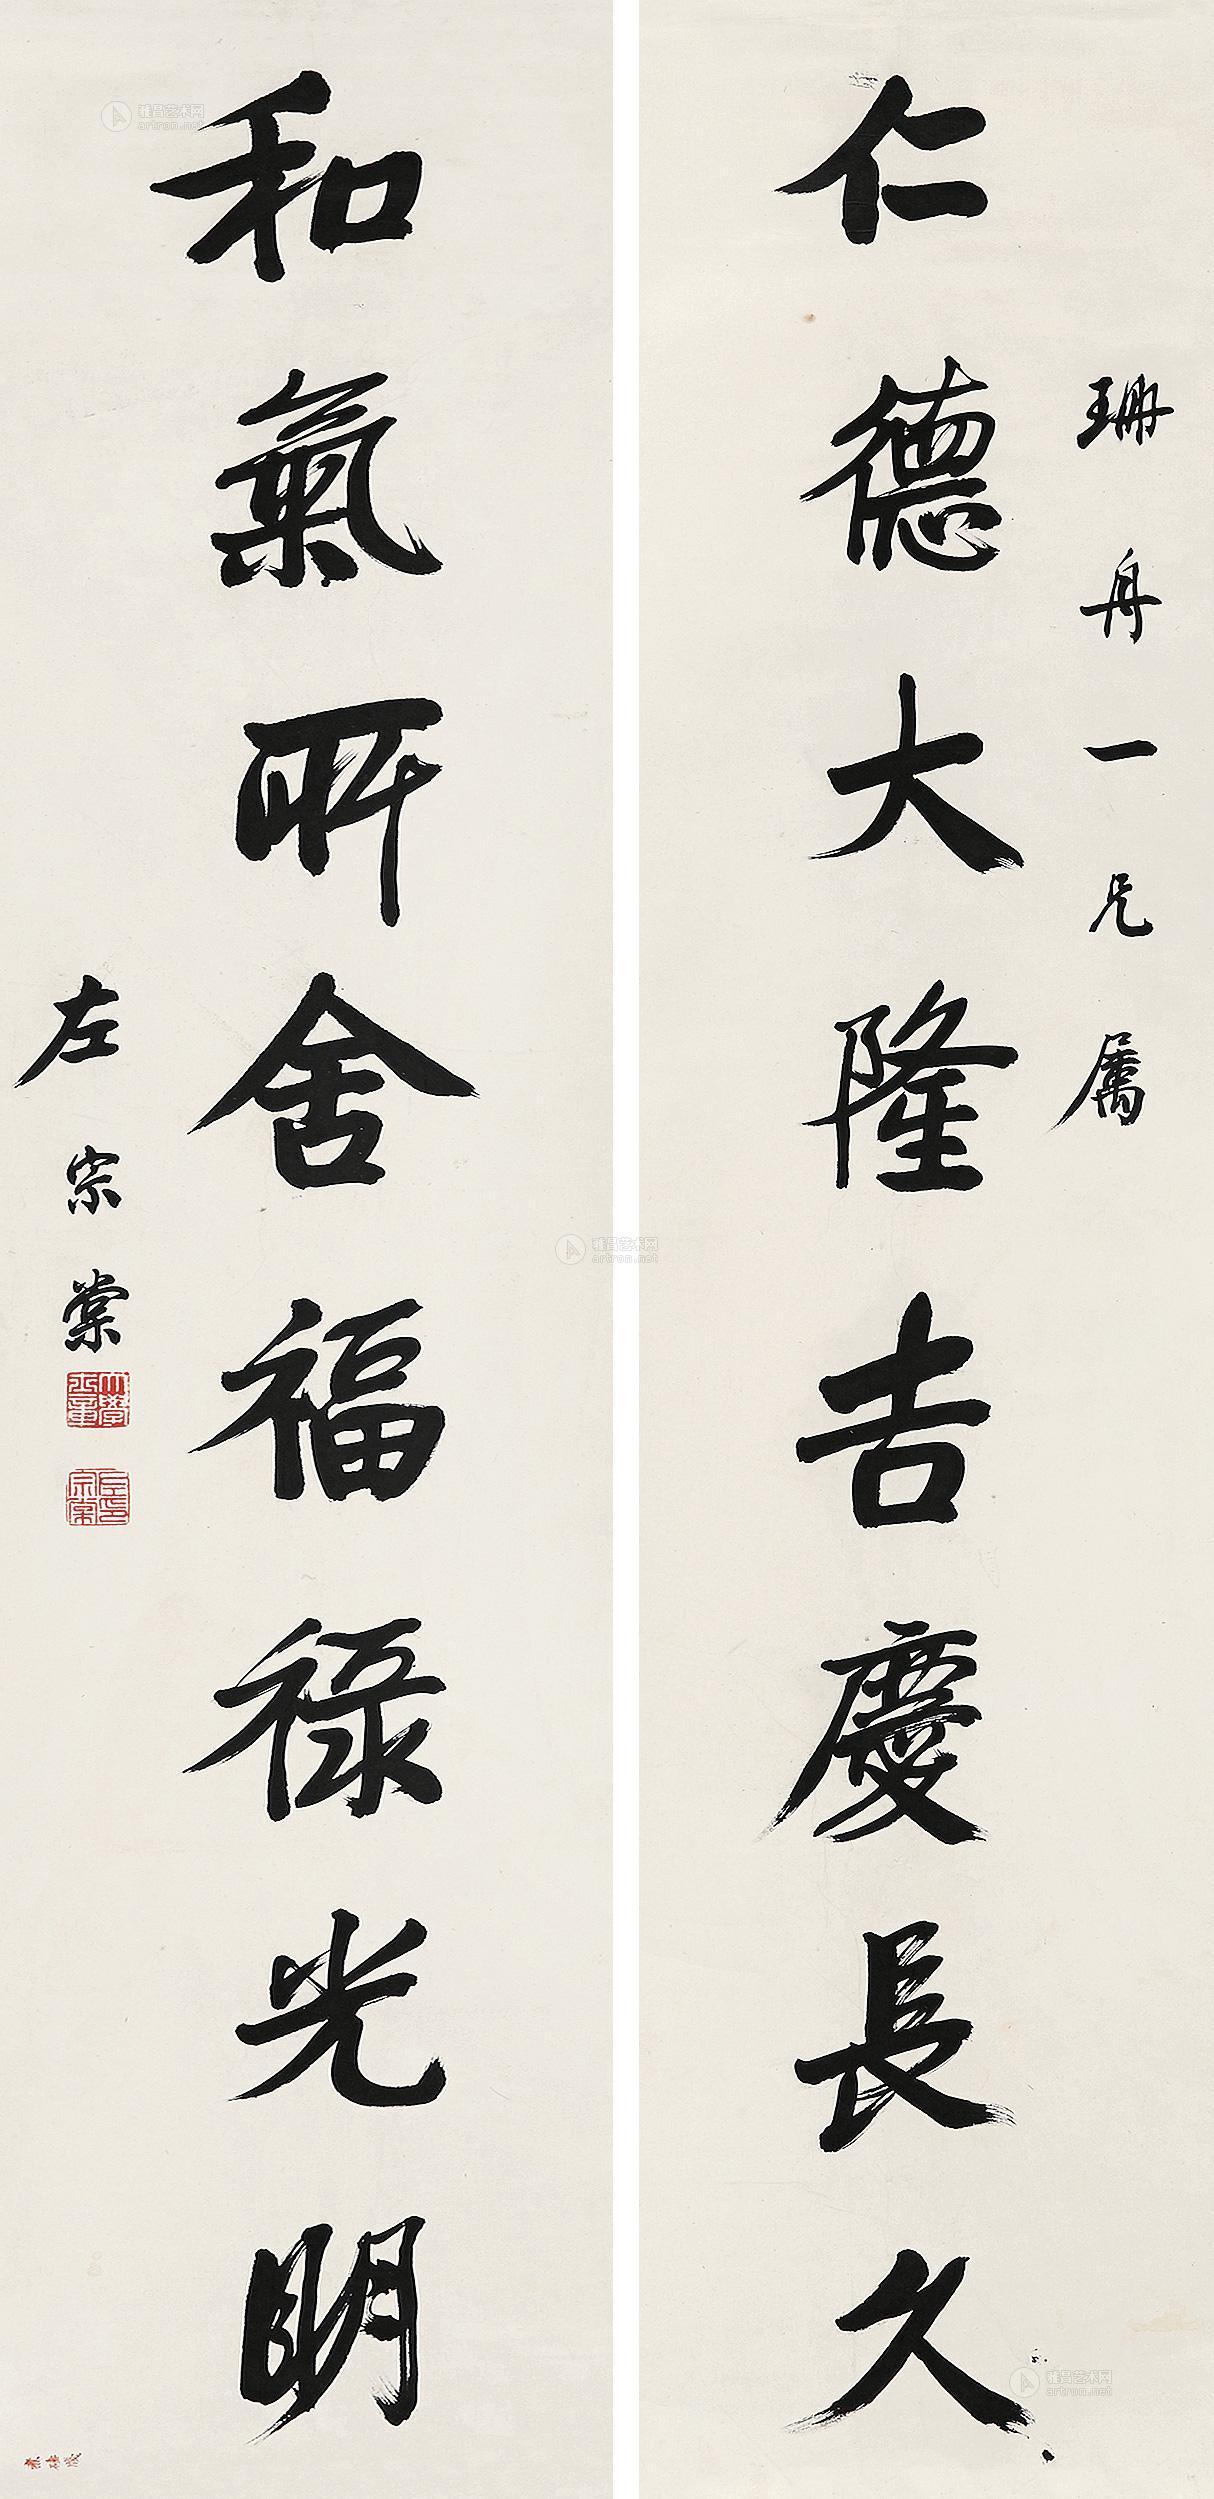 珊舟一兄属
仁德大隆吉慶長久
和氣所舍福祿光明
左宗棠
大學士章
左宗棠印
雅昌艺术网
artron.net
雅昌艺术网
artron.net
雅昌艺术网
artron.net